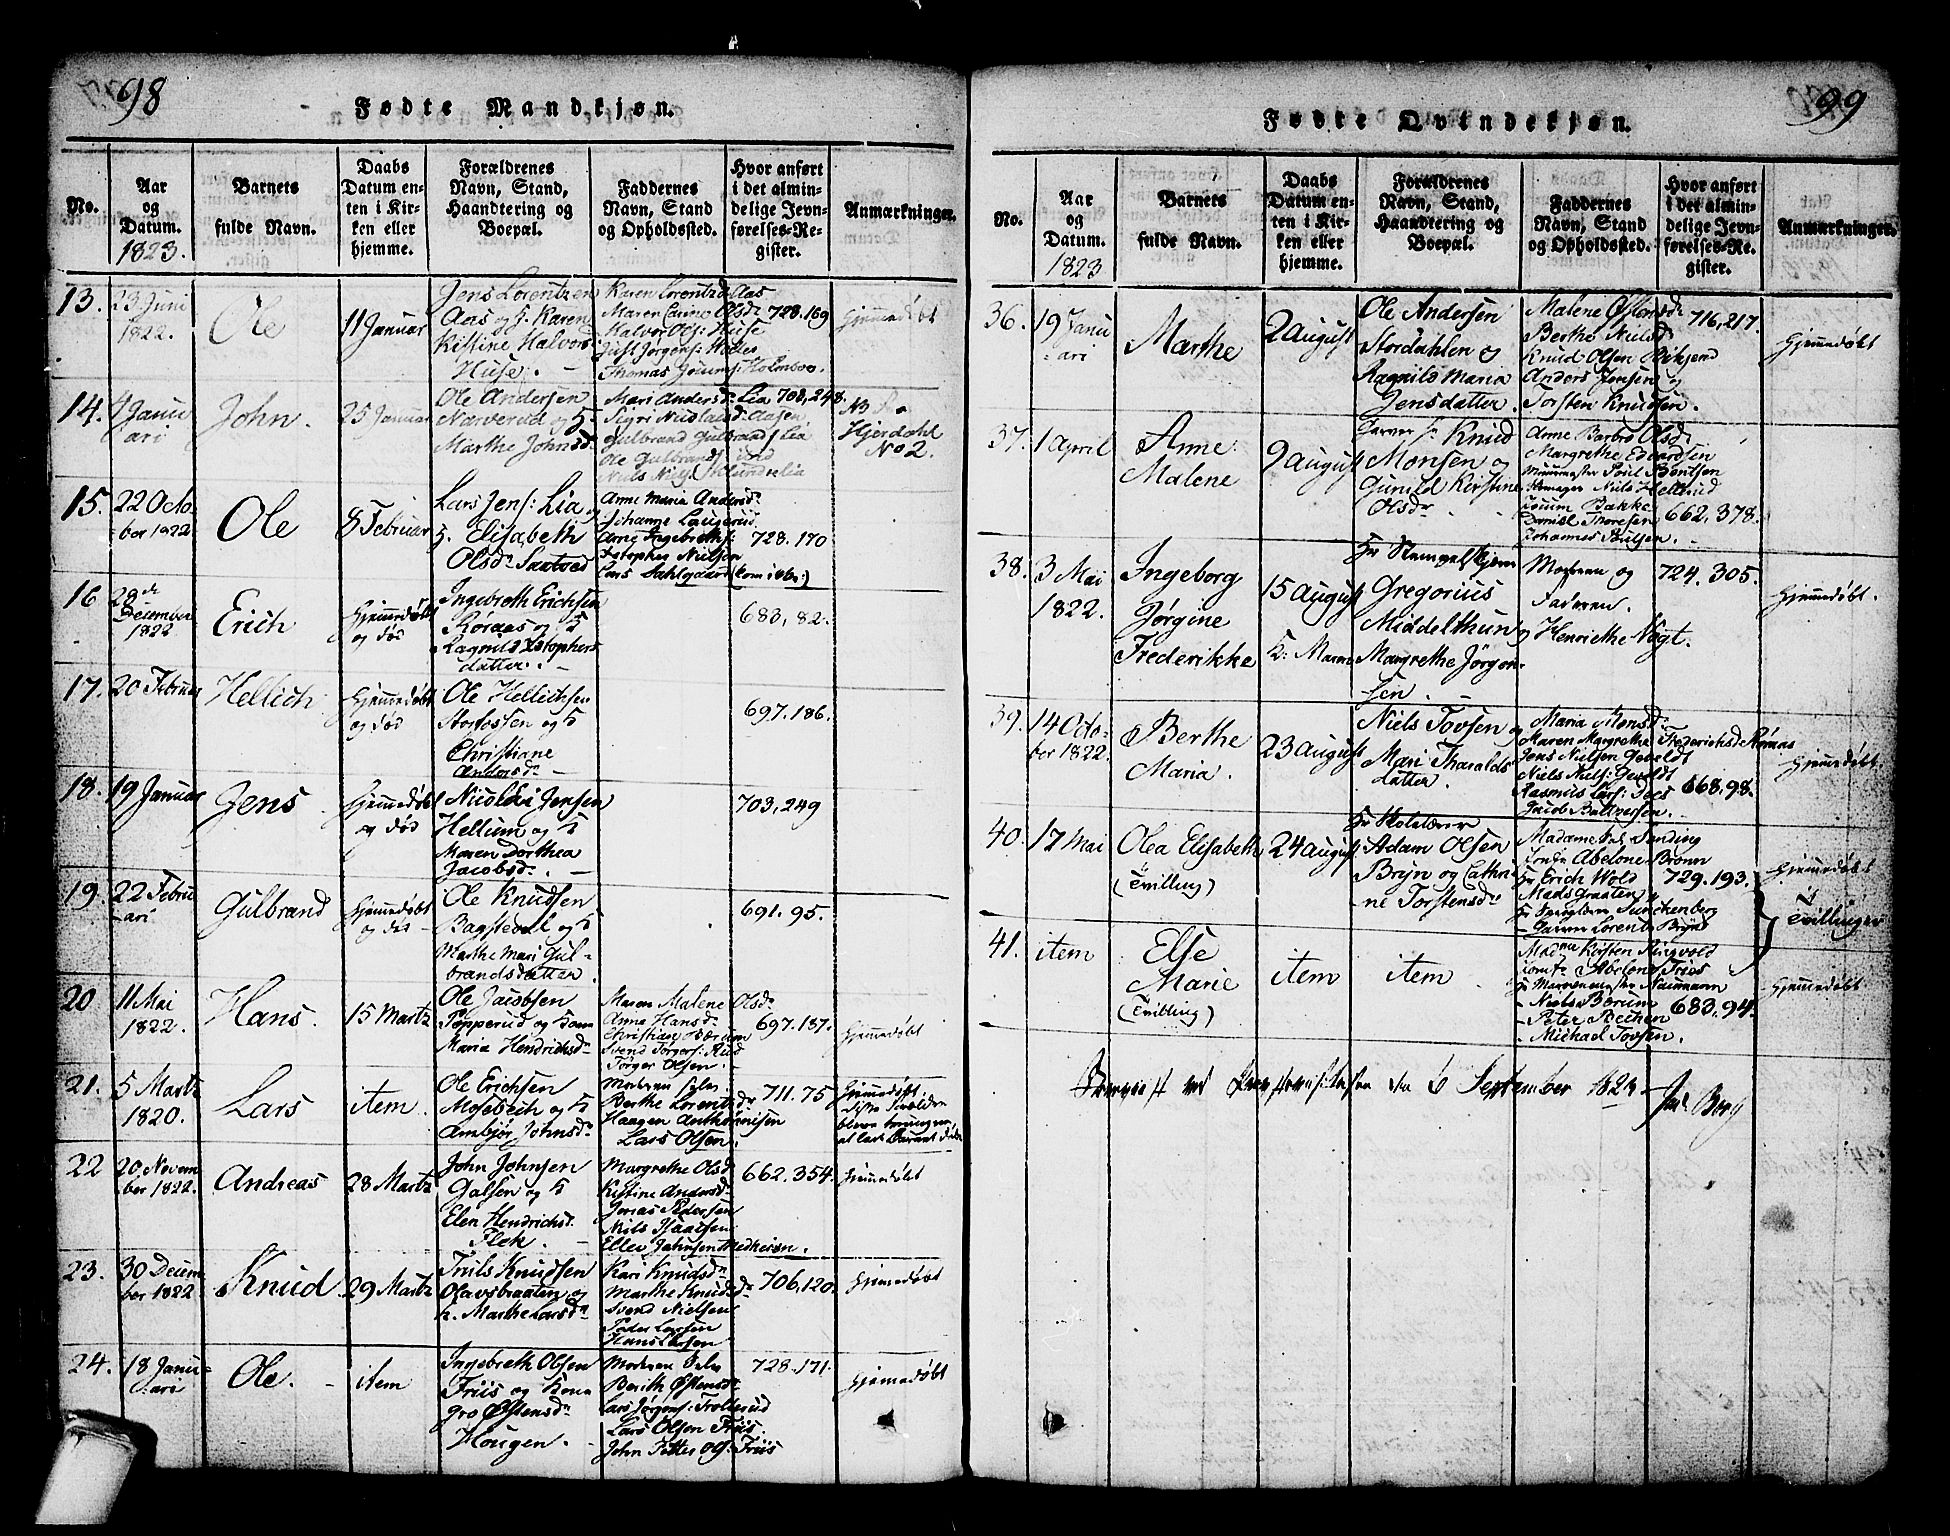 98
Fødte Mandkjøn.
No.
Aar
og
Datum.
1823.
Barnets
fulde Navn.
Daabs
Datum en-
ten i Kir-
ken eller
hjemme.
Forældrenes
Navn, Stand,
Haandtering og
Boepæl.
Faddernes
Navn, Stand
og Opholdssted.
Hvor anført
i det almin-
delige Jevn-
førelses-Re-
gister.
Anmærkninger.
13.
23 Juni
1822.
Ole
11 Januar
Jens Lorentzen
Aas og H. Karen
Kistine Halvors
Huse. -
Karen Lorentzd Aas
Maren Carine Olsdr
Halvor Ols: Huse
Just Jørgens: Holtes
Thomas Holmsbo.
728.169
Hjemmedøbt
14.
4 Janu
ari
John.
25 Januar
Ole Andersen
Narverud og H.
Marthe Johnsdr
Mari Andersdr Lia
Sigri Nicolaisdr Aasen
Gulbrand Gulbrands Lia
Ole Gulbrands
Niels Niels
708,248.
Hjerdahl
No 2.
15.
22 Octo
ber 1822
Ole
8 Februar
Lars Jens: Lia og
H. Elisabeth
Olsdr Saatved
Anne Maria Andersdr
Johanne Laugerud
Arne Ingebreths:
Xstopher Nielsen
Lars Dahlgaard (kom ikke:)
728.170
16
28de
December
1822
Erich
Hjemmedøbt
og død
Ingebreth Erichsen
Roraas og H
Ragnild Xstophers
datter. -
683,82.
17.
20 Februar
Hellich
Hjemmedøbt
og død
Ole Hellichsen
Storfossen og H
Christiane
Andersdr -
697.186.
18.
19 Januar
Jens
Hjemmedøbt
og død
Nicolai Jensen
Hellum og H
Maren Dorthea
Jacobsdr. -
703,249
19.
22 Febru
-ari
Gulbrand
Hjemmedøbt
og død -
Ole Knudsen
Bagstevol og H
Marthe Mari Gul-
brandsdatter.
691.95.
20
11 Mai
1822.
Hans.
15 Martz
Ole Jacobsen
Pepperud og Kona
Maria Hendrichsdr
Maren Malene Olsdr
Anne Hansdr
Christian Bærum
Svend Torgers: Rud
Torger Olsen. -
697.187.
Hjemmedøbt
21.
5 Martz
1820.
Lars
item.
Ole Erichsen
Mosebech og H
Ambjør Johnsdr
Moderen selv
Berthe Lorentsdr
Haagen Anthonisen
Lars Olsen.
711.75
Hjemmedøbt
disse Forældre
bleve
at lade Barnet
22
20 Novem
ber 1822.
Andreas
28 Martz
John Johnsen
Galsen og H
Elen Hendrichsd.
Flek. -
Margrethe Olsd
Kistine Andersdr
Jonas Pedersen
Nils Isaacsen
Ellev Jahnsen Medheien.
662.354.
Hjemmedøbt
23.
30 Decem
ber 1822
Knud
29 Martz
Truls Knudsen
Olavsbraaten og
H. Marthe Larsdr
Kari Knudsdr
Marthe Knudsdr
Svend Nielsen
Peder Larsen
Hans Larsen
706,120.
Hjemmedøbt
24.
18 Janu-
ari
Ole. -
item
Ingebreth Olsen
Friis og Kona
Gro Østensdr
Hougen. -
Moderen Selv
Berith Østensdr
Lars Jørgens: Trollerud
Lars Olsen Friis
John Petter Ols: Friis
728.171.
Hjemmedøbt
99
Fødte Qvindekjøn.
No.
Aar
og
Datum.
1823
Barnets
fulde Navn.
Daabs
Datum en-
ten i Kir-
ken eller
hjemme.
Forældrenes
Navn, Stand,
Haandtering og
Boepæl.
Faddernes
Navn, Stand
og Opholdssted.
Hvor anført
i det almin-
delige Jevn-
førelses-Re-
gister.
Anmærkninger.
36.
19 Janu
ari
Marthe
2 August
Ole Andersen
Stordahlen og
Ragnild Maria
Jensdatter.
Malene Østensdr
Berthe Nielsdr
Knud Olsen Bikjend
Anders Jensen og
Torsten Knudsen.
716,217.
Hjemmedøbt
37.
1 April
Anne
Malene
9 August
Farver Hr Knud
Monsen og
Gunild Kirstine
Olsdr
Anne Barbro Olsdr
Margrethe Edvardsen
Muurmester Poul Bentsen
Niels Hellerud
Bakke
Daniel Thoresen
Johannes Poulsen. -
662.378.
38.
3 Mai
1822.
Ingeborg
Jørgine
Frederikke
15 August
H: Marm
Hr Stempelskjær
Gregorius
Middelthun og
Margrethe Jørgen-
sen.
Moderen og
Faderen.
Henriethe Vogt.
724.305.
Hjemmedøbt.
39.
14 Octo
ber 1822.
Berthe
Maria.
23 August
Niels Tovsen og
Mari Tharalds
datter.
Maria Monsdr
Maren Margrethe Frederichsd Rønnes
Jens Nielsen Geveldt
Niels Niels: Geveldt
Rasmus Lars: Dees
Jacob Baltzersen.
668,98.
Hjemmedøbt.
40.
17 Mai
Olea Elisabeth
(Tvilling)
24 August
Hr Skolelærer
Adam Olsen
Bryn og Cathri
-ne Torstensdr
Madame Sanding
Jomfr Abelone Brønn
Hr Erich Wold
Mads Graaten
Hr Sunckenberg
- Lorentz Bryn
729.193.
Hjemmedøbt
Tvillinger
41.
item
Else
Marie
(Tvilling)
item
item
Madme Kirsten Ringvold
Jomfr Abelone Friis
Hr Marcheneuster Naumann
- Niels Borum
- Peter Stechen
- Michael Tovsen.
683.94.
Hjemmedøbt
6 September 1823
Berg